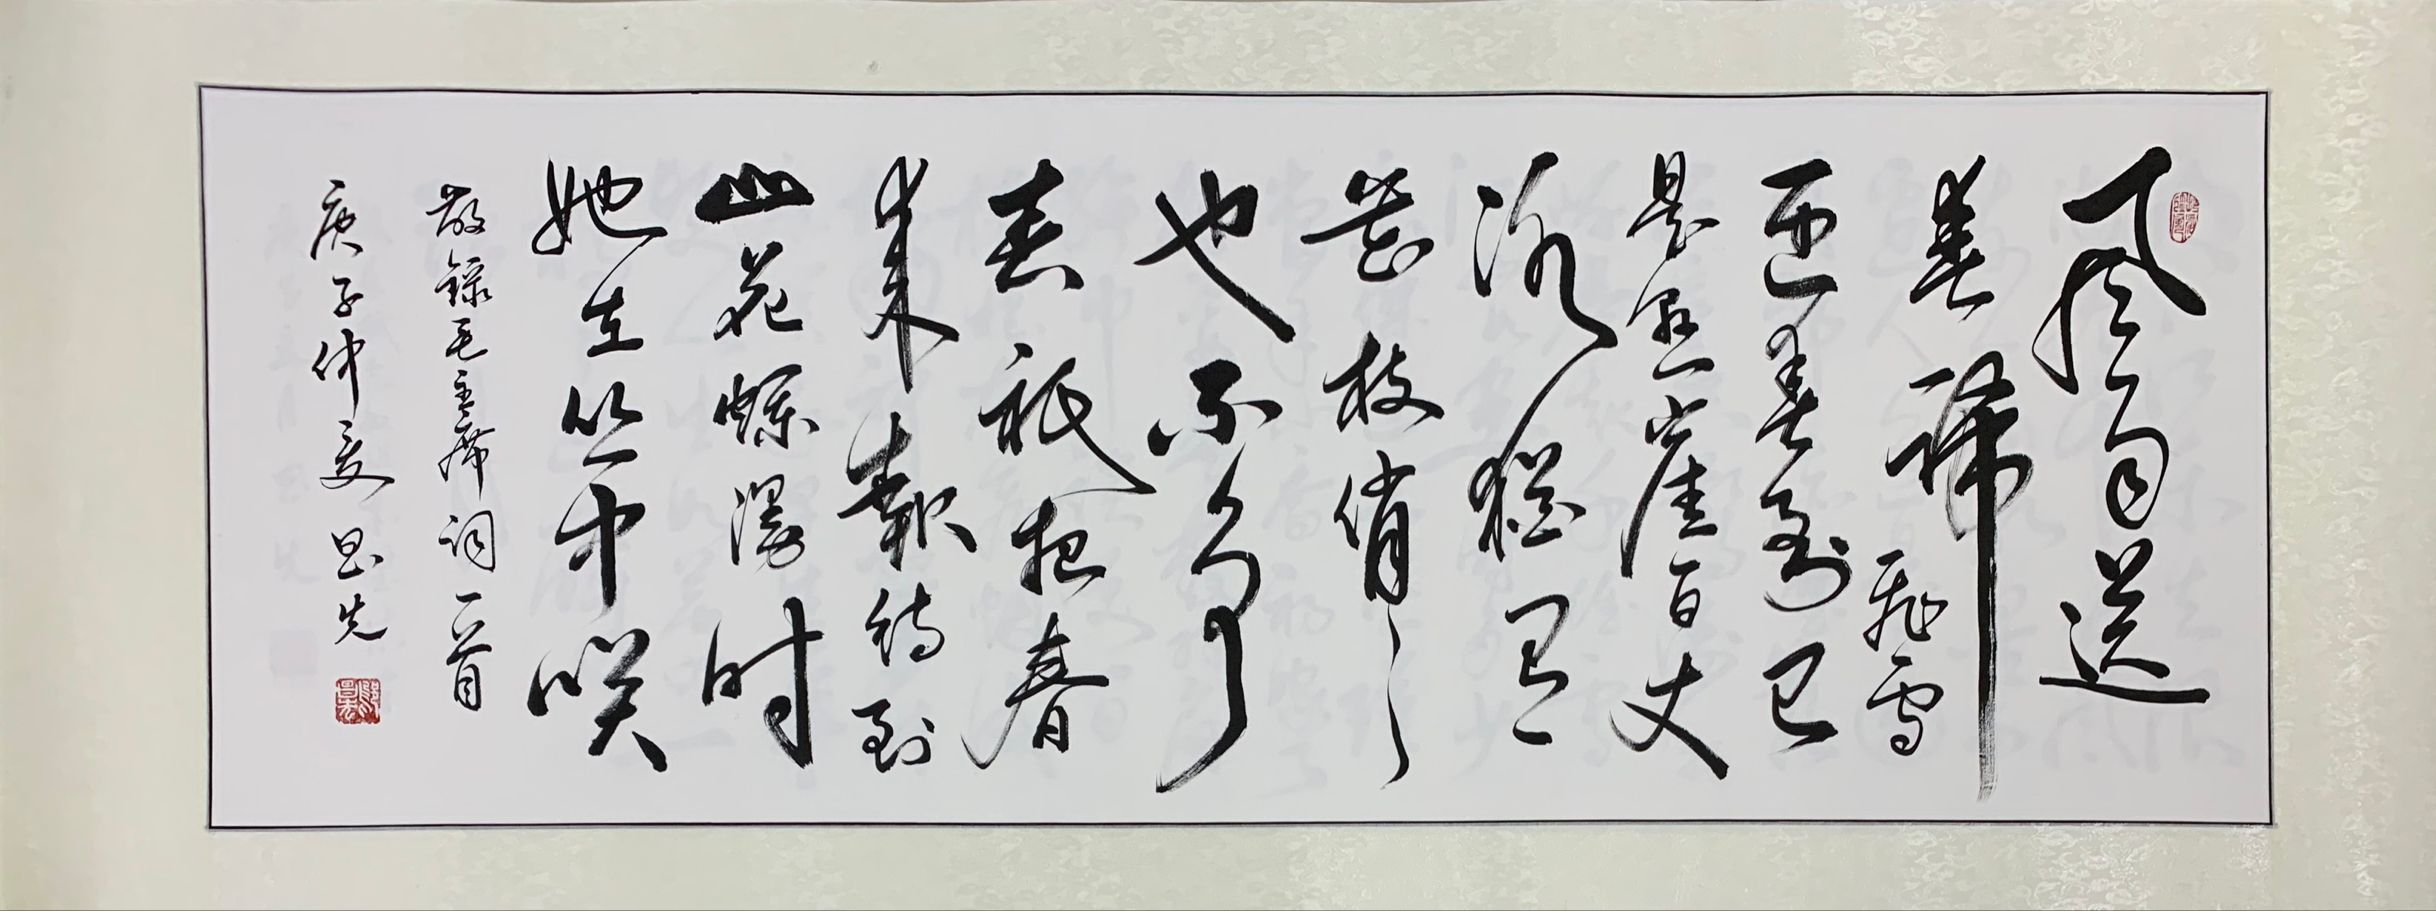 风雨送
春歸飛雪
迎春到已
是悬崖百丈
冰猶有
花枝俏〻
也不争
春祇把春
来報待到
山花爛漫时
她在丛中咲
敬録毛主席词一首
庚子仲夏